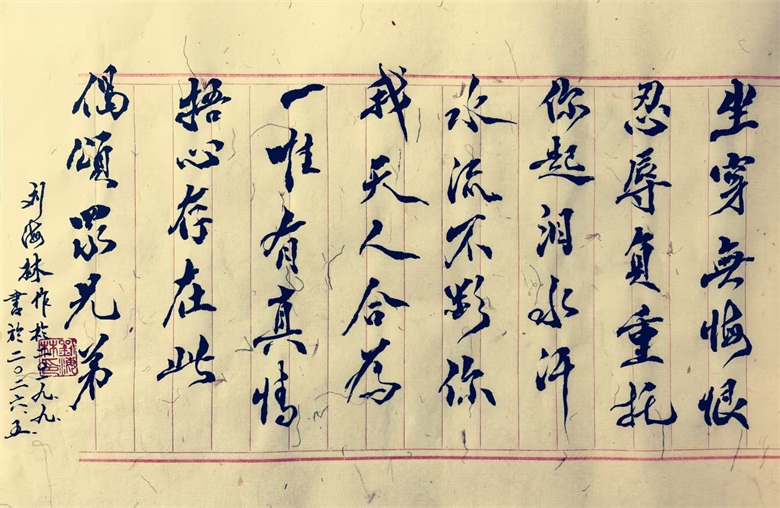 坐穿無悔恨
忍辱負重托
你起泪水汗
水流不断你
我天人合為
一唯有真情
捂心存在此
偈頌眾兄弟
刘海林作於一九九九.
書於二〇二六.五